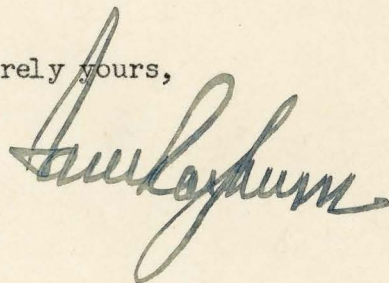 rely yours,
Sam Rayburn